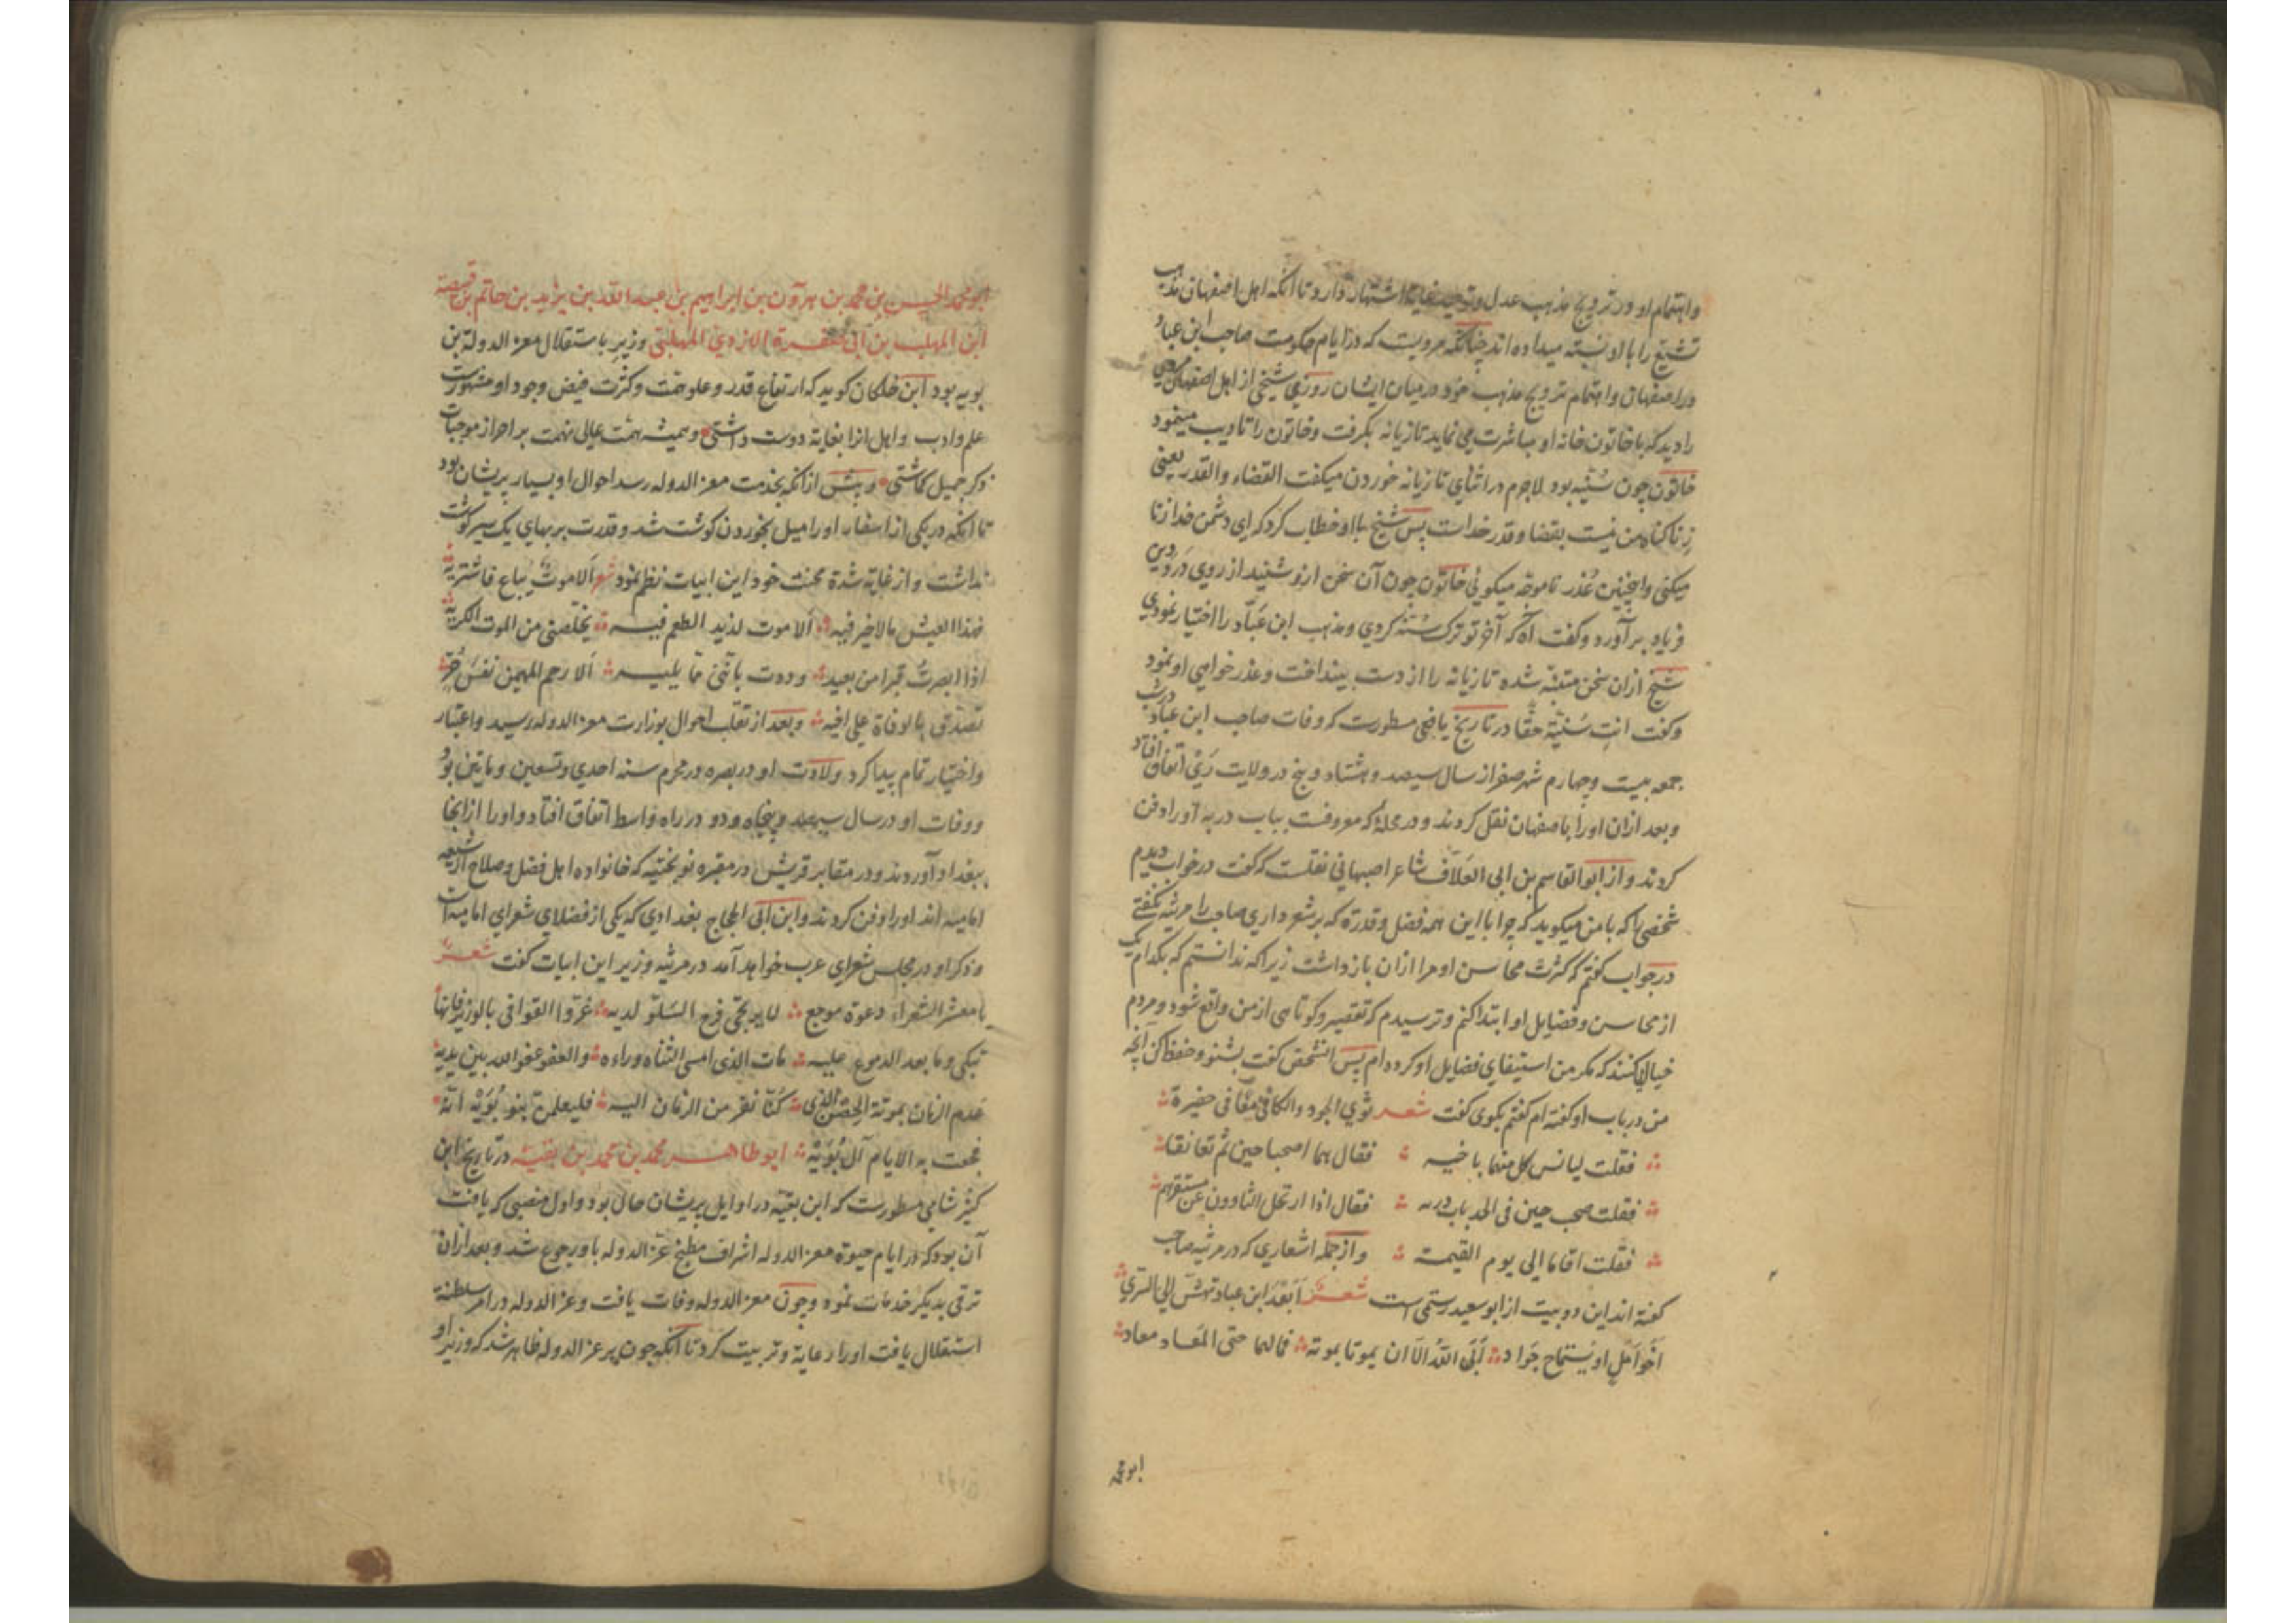 واهتمام او در ترویج مذهب عدل و توحید بغایة اشتهار دارد تا آنکه اهل اصفهان مذهب
تشیّع را با او نسبة میداده اند چنانکه مرویست که در ایام حکومت صاحب ابن عباد
در اصفهان و اهتمام ترویج مذهب خود در میان ایشان روزی شیخی از اهل اصفهان
را دید که با خاتون خانه او مباشرت می نماید تازیانه بگرفت و خاتون را تادیب مینمود
خاتون چون سُنّیه بود لاجرم در اثنای تازیانه خوردن میکفت القضاء والقدر یعنی
زنا کناه من نیست بقضا و قدر خداست پس شیخ با او خطاب کرد که ای دشمن خدا زنا
میکنی و اینچنین عُذر ناموجّه میکوئی خاتون چون آن سخن ازو شنید از روی درد دین
فریاد برآورد و کفت آه که آخر تو ترک سُنّه کردی و مذهب ابن عَبّاد را اختیار نمودی
شیخ ازان سخن متنبّه شده تازیانه را از دست بینداخت و عذر خواهی او نمود
و کفت انتِ سُنّیّة حقّا در تاریخ یافعی مسطورست که وفات صاحب ابن عباد در شب
جمعه بیست و چهارم شهر صفر از سال سیصد و هشتاد و پنج در ولایت رَیّ اتفاق افتاد
و بعد ازان اورا باصفهان نقل کردند و در محلهٔ که معروفست بباب دریه اورا دفن
کردند و از ابو القاسم بن ابی العَلآف شاعر اصبهانی نقلست که کفت در خواب دیدم
شخصی را که با من میکوید که چرا با این همه فضل و قدرة که بر شعر داری صاحب را مرثیه نکفتی
در جواب کفتم که کثرت محاسن او مرا ازان بازداشت زیرا که ندانستم که بکدام یک
از محاسن و فضایل او ابتدا کنم و ترسیدم که تقصیر و کوتاهی از من واقع شود و مردم
خیال کنند که مکر من استیفای فضایل او کرده ام پس آنشخص کفت بشنو و حفظ کن آنچه
من در باب او کفته ام کفتم بکوی کفت شعر ثوی الجود والکافی معًا فی حفیرة
فقلت لیانس کل منهما باخیه فقال هما اصحبا حین ثم تعانقا
فقلت صحب حین فی الحد باب دریه فقال اذا ارتحل الثاوون عن مستقرهم
فقلت اقاما الی یوم القیمة و از جمله اشعاری که در مرثیه صاحب
کفته اند این دو بیت از ابو سعید رستمی است شعر اَبَعدَ ابن عباد تهشّ الی السّری
اخو اَمَل او یُستماح جَواد اَبَی اللهُ الّا ان یموتا بموته فما لهما حتی المعاد معاد
ابو محمد
ابو محمد الحسن بن محمد بن هرون بن ابراهیم بن عبد الله بن یزید بن حاتم بن قبیصة
ابن المهلب بن ابی صفرة الازدی المهلبی وزیر با ستقلال معز الدولة بن
بویه بود ابن خلکان کوید که ارتفاع قدر و علو همّت و کثرت فیض وجود او مشهورست
علم و ادب و اهل آنرا بغایة دوست داشتی و همیشه همّت عالی نهمت بر احراز موجبات
ذکر جمیل کماشتی و پیش ازآنکه بخدمت معز الدوله رسد احوال او بسیار پریشان بود
تا آنکه در یکی از اسفار اورا میل بخوردن کوشت شد و قدرت بر بهای یک سیر کوشت
نداشت و از غایة شدة محنت خود این ابیات نظم نمود شعر اَلا موتٌ یباع فاشتریه
فهذا العیش مالا خیر فیه اَلا موت لذیذ الطعم فیه یخلّصنی من الموت الکریه
اذا ابصرتُ قبرا من بعید وددت باَنّنی ممّا یلیه اَلا رحم المهیمن نفسَ حُرّ
تصدّق بالوفاة علی اخیه و بعد از تقلّب احوال بوزارت معز الدوله رسید و اعتبار
و اختیار تمام پیدا کرد ولادت او در بصره در محرم سنه احدی و تسعین و مایتین بود
و وفات او در سال سیصد و پنجاه و دو در راه واسط اتفاق افتاد و اورا از انجا
ببغداد آوردند و در مقابر قریش در مقبره نوبختیه که خانواده اهل فضل و صلاح از شیعه
امامیه اند اورا دفن کردند و ابن ابی الحجاج بغدادی که یکی از فضلای شعرای امامیه است
و ذکر او در مجلس شعرای عرب خواهد آمد در مرثیه وزیر این ابیات کفت شعر
یا معشر الشعراء دعوة موجع لا یرتجی فرح السَلوّ لدیه عُزّوا القوافی بالوزیر فانّها
تبکی دما بعد الدموع علیه مات الذی امسی الثناء وراءه والعفو عفو الله بین یدیه
هَدم الزمان بموته الحصن الذی کنّا نفرّ من الزمان الیه فلیعلمن بنو بُوَیْه انّه
فجعت به الایام آل بُوَیْه ابو طاهر محمد بن محمد بن بقیة در تاریخ ابن
کثیر شامی مسطورست که ابن بقیّة در اوایل پریشان حال بود و اول منصبی که یافت
آن بود که در ایام حیوة معز الدوله اشراف مطبخ عزّ الدوله باو رجوع شد و بعد ازان
ترقی بدیکر خدمات نمود و چون معز الدوله وفات یافت و عز الدوله در امر سلطنة
استقلال یافت اورا رعایة و تربیت کرد تا آنکه چون بر عز الدوله ظاهر شد که وزیر او